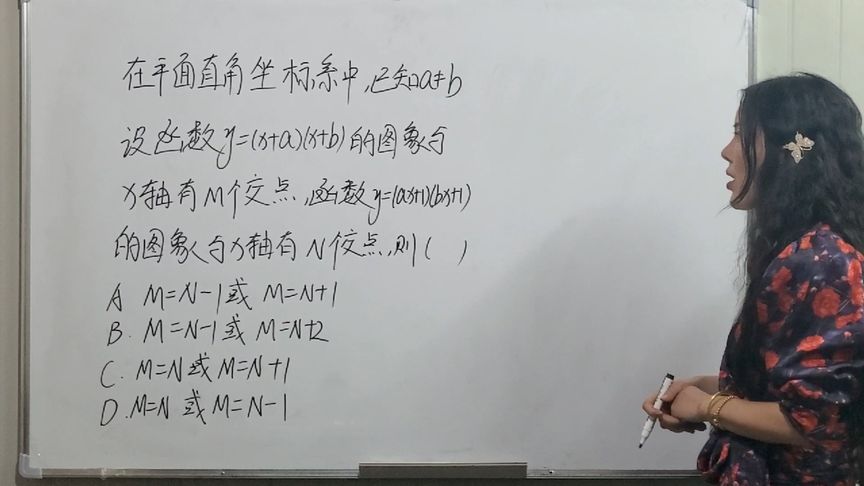 在平面直角坐标系中,已知a≠b
设函数y=(x+a)(x+b)的图象与
x轴有M个交点,函数y=(ax+1)(bx+1)
的图象与x轴有N个交点,则( )
A M=N-1或 M=N+1
B. M=N-1或 M=N+2
C. M=N或M=N+1
D.M=N 或M=N-1